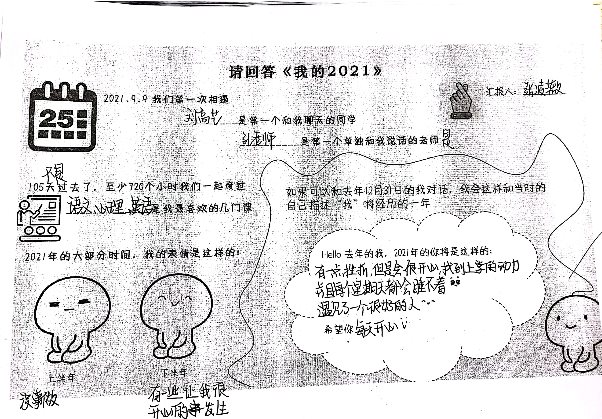 请回答《我的2021》
汇报人：
25
2021.9.9 我们第一次相遇
刘尚艺 是第一个和我聊天的同学
孙老师 是第一个单独和我说话的老师
105天过去了，至少720个小时我们一起度过
语文、心理、英语 是我最喜欢的几门课
如果可以和去年12月31日的我对话，我会这样和当时的
自己描述“我”将经历的一年
2021年的大部分时间，我的表情是这样的：
Hello 去年的我，2021年的你将是这样的：
有一点挫折，但是会很开心，找到上学的动力
并且每个星期天都会睡不着
遇见了一个很好的人…
希望你 每天开心
上半年
下半年
没新版
有一些让我很
开心的事发生